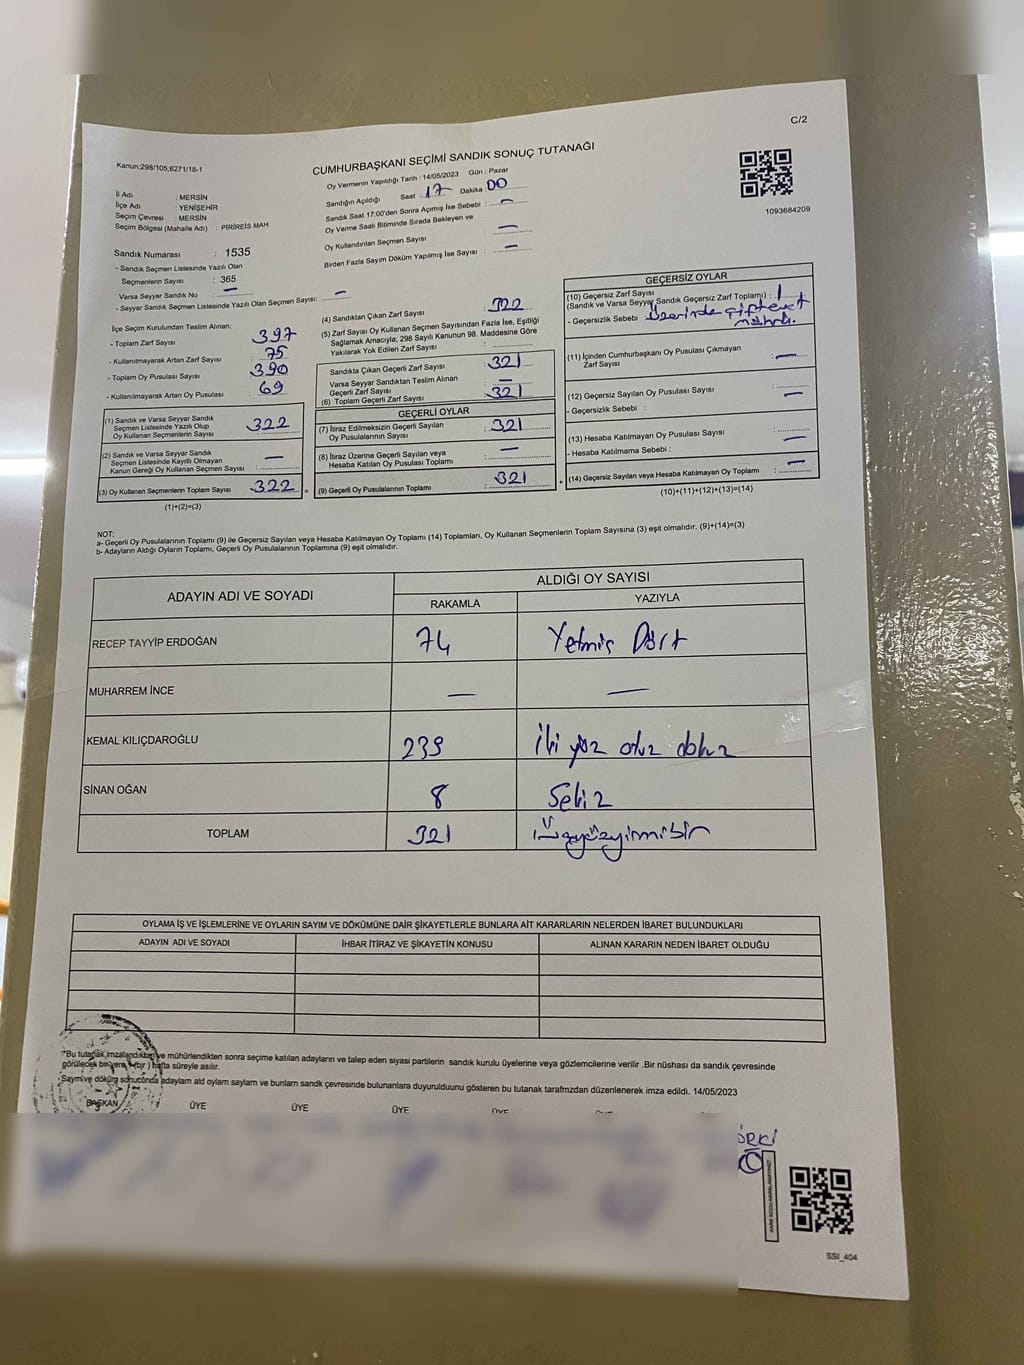 C/2
Kanun;298/105;6271/18-1
CUMHURBAŞKANI SEÇİMİ SANDIK SONUÇ TUTANAĞI
Oy Vermenin Yapıldığı Tarih : 14/05/2023 Gün : Pazar
Sandığın Açıldığı Saat : 17 Dakika : 00
Sandık Saat 17:00'den Sonra Açımış İse Sebebi : —
Oy Verme Saati Bitiminde Sırada Bekleyen ve
Oy Kullandırılan Seçmen Sayısı —
Birden Fazla Sayım Döküm Yapılmış İse Sayısı : —
1093684209
İl Adı : MERSİN
İlçe Adı : YENİŞEHİR
Seçim Çevresi : MERSİN
Seçim Bölgesi (Mahalle Adı) : PİRİREİS MAH.
Sandık Numarası : 1535
- Sandık Seçmen Listesinde Yazılı Olan
Seçmenlerin Sayısı : 365
Varsa Seyyar Sandık No —
- Seyyar Sandık Seçmen Listesinde Yazılı Olan Seçmen Sayısı: —
İlçe Seçim Kurulundan Teslim Alınan;
- Toplam Zarf Sayısı 397
- Kullanılmayarak Artan Zarf Sayısı 75
- Toplam Oy Pusulası Sayısı 390
- Kullanılmayarak Artan Oy Pusulası 69
(1) Sandık ve Varsa Seyyar Sandık
Seçmen Listesinde Yazılı Olup
Oy Kullanan Seçmenlerin Sayısı : 322
(2) Sandık ve Varsa Seyyar Sandık
Seçmen Listesinde Kayıtlı Olmayan
Kanun Gereği Oy Kullanan Seçmen Sayısı : —
(3) Oy Kullanan Seçmenlerin Toplam Sayısı : 322 =
(1)+(2)=(3)
(4) Sandıktan Çıkan Zarf Sayısı : 322
(5) Zarf Sayısı Oy Kullanan Seçmen Sayısından Fazla İse, Eşitliği
Sağlamak Amacıyla; 298 Sayılı Kanunun 98. Maddesine Göre
Yakılarak Yok Edilen Zarf Sayısı :
Sandıkta Çıkan Geçerli Zarf Sayısı : 321
Varsa Seyyar Sandıktan Teslim Alınan
Geçerli Zarf Sayısı : —
(6) Toplam Geçerli Zarf Sayısı : 321
GEÇERLİ OYLAR
(7) İtiraz Edilmeksizin Geçerli Sayılan
Oy Pusulalarının Sayısı : 321
(8) İtiraz Üzerine Geçerli Sayılan veya
Hesaba Katılan Oy Pusulası Toplamı : —
(9) Geçerli Oy Pusulalarının Toplamı : 321 +
GEÇERSİZ OYLAR
(10) Geçersiz Zarf Sayısı
(Sandık ve Varsa Seyyar Sandık Geçersiz Zarf Toplamı) : 1
- Geçersizlik Sebebi : Üzerinde çift evet
mühürlü.
(11) İçinden Cumhurbaşkanı Oy Pusulası Çıkmayan
Zarf Sayısı : —
(12) Geçersiz Sayılan Oy Pusulası Sayısı : —
- Geçersizlik Sebebi :
(13) Hesaba Katılmayan Oy Pusulası Sayısı : —
- Hesaba Katılmama Sebebi :
(14) Geçersiz Sayılan veya Hesaba Katılmayan Oy Toplamı : —
(10)+(11)+(12)+(13)=(14)
NOT:
a- Geçerli Oy Pusulalarının Toplamı (9) ile Geçersiz Sayılan veya Hesaba Katılmayan Oy Toplamı (14) Toplamları, Oy Kullanan Seçmenlerin Toplam Sayısına (3) eşit olmalıdır. (9)+(14)=(3)
b- Adayların Aldığı Oyların Toplamı, Geçerli Oy Pusulalarının Toplamına (9) eşit olmalıdır.
ADAYIN ADI VE SOYADI ALDIĞI OY SAYISI
RAKAMLA YAZIYLA
RECEP TAYYİP ERDOĞAN 74 Yetmiş Dört
MUHARREM İNCE — —
KEMAL KILIÇDAROĞLU 239 İki yüz otuz dokuz
SİNAN OĞAN 8 Sekiz
TOPLAM 321 Üçyüzyirmibir
OYLAMA İŞ VE İŞLEMLERİNE VE OYLARIN SAYIM VE DÖKÜMÜNE DAİR ŞİKAYETLERLE BUNLARA AİT KARARLARIN NELERDEN İBARET BULUNDUKLARI
ADAYIN ADI VE SOYADI İHBAR İTİRAZ VE ŞİKAYETİN KONUSU ALINAN KARARIN NEDEN İBARET OLDUĞU
*Bu tutanak imzalandıktan ve mühürlendikten sonra seçime katılan adayların ve talep eden siyasi partilerin sandık kurulu üyelerine veya gözlemcilerine verilir. Bir nüshası da sandık çevresinde
görülecek bir yere, (bir) hafta süreyle asılır.
Sayım ve döküm sonucunda adayların ald oyların sayların ve bunların sandk çevresinde bulunanlara duyurulduunu gösteren bu tutanak tarafmzdan düzenlenerek imza edildi. 14/05/2023
BAŞKAN ÜYE ÜYE ÜYE ÜYE
SSI_404